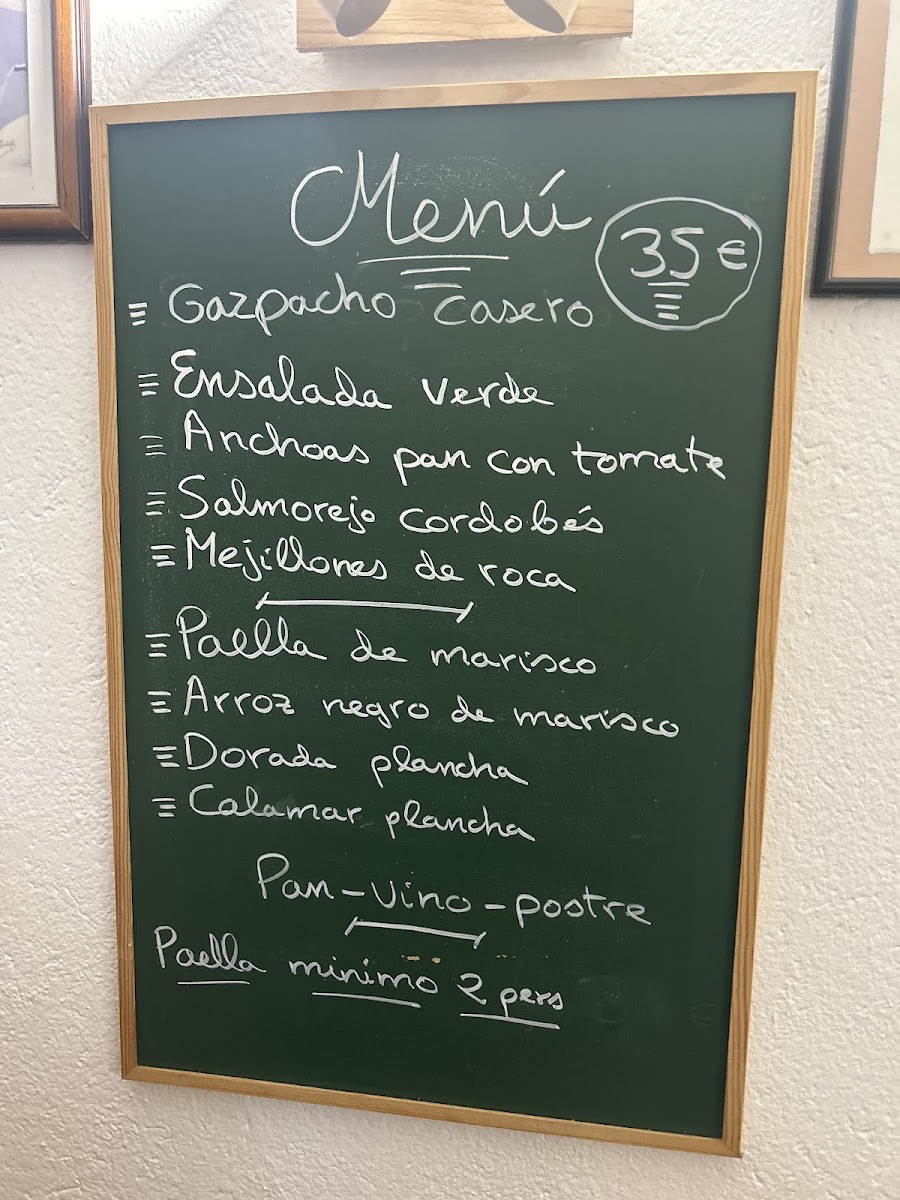 Menú
35€
Gazpacho casero
Ensalada verde
Anchoas pan con tomate
Salmorejo cordobés
Mejillones de roca
Paella de marisco
Arroz negro de marisco
Dorada plancha
Calamar plancha
Pan-vino-postre
Paella minimo 2 pers